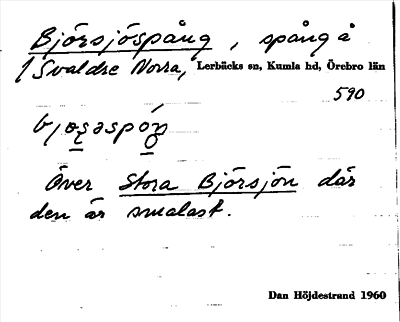 Björsjöspång, spång å
Svaldre Norra, Lerbäcks sn, Kumla hd, Örebro län
590
Över Stora Björsjön där
den är smalast.
Dan Höjdestrand 1960